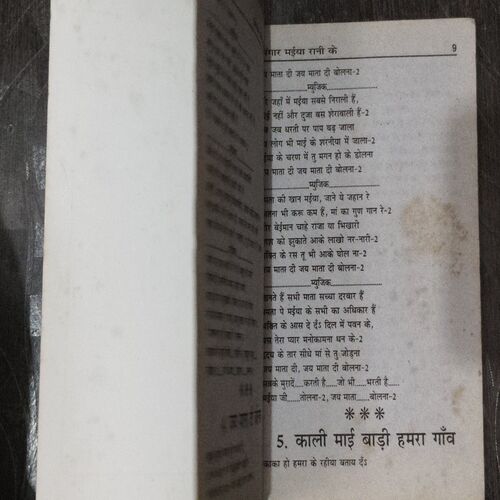 मईया रानी के 9
माता दी जय माता दी बोलना-2
म्युजिक
जहाँ में मईया सबसे निराली हैं,
नहीं और दुजा बस शेरावाली हैं-2
जब धरती पर पाप बढ़ जाला
लोग भी माई के शरनीया में जाला-2
के चरण में तु मगन हो के डोलना
माता दी जय माता दी बोलना-2
म्युजिक
की खान मईया, जाने ये जहान रे
भी करू कम हैं, मां का गुण गान रे-2
बेईमान चाहे राजा या भिखारी
को झुकाते आके लाखो नर-नारी-2
के रस तू भी आके घोल ना
माता दी जय माता दी बोलना-2
म्युजिक
हैं सभी माता सच्चा दरबार हैं
पे मईया के सभी का अधिकार हैं
के आस दे दऽ दिल में पवन के,
तेरा प्यार मनोकामना धन के-2
के तार सीधे मां से तु जोड़ना
माता दी, जय माता दी बोलना-2
मुरादें.....करती है.....जो भी.....भरती है.....
जी.....तोलना-2, जय माता.....बोलना-2
***
5. काली माई बाड़ी हमरा गाँव
काका हो हमरा के रहीया बताय दऽ